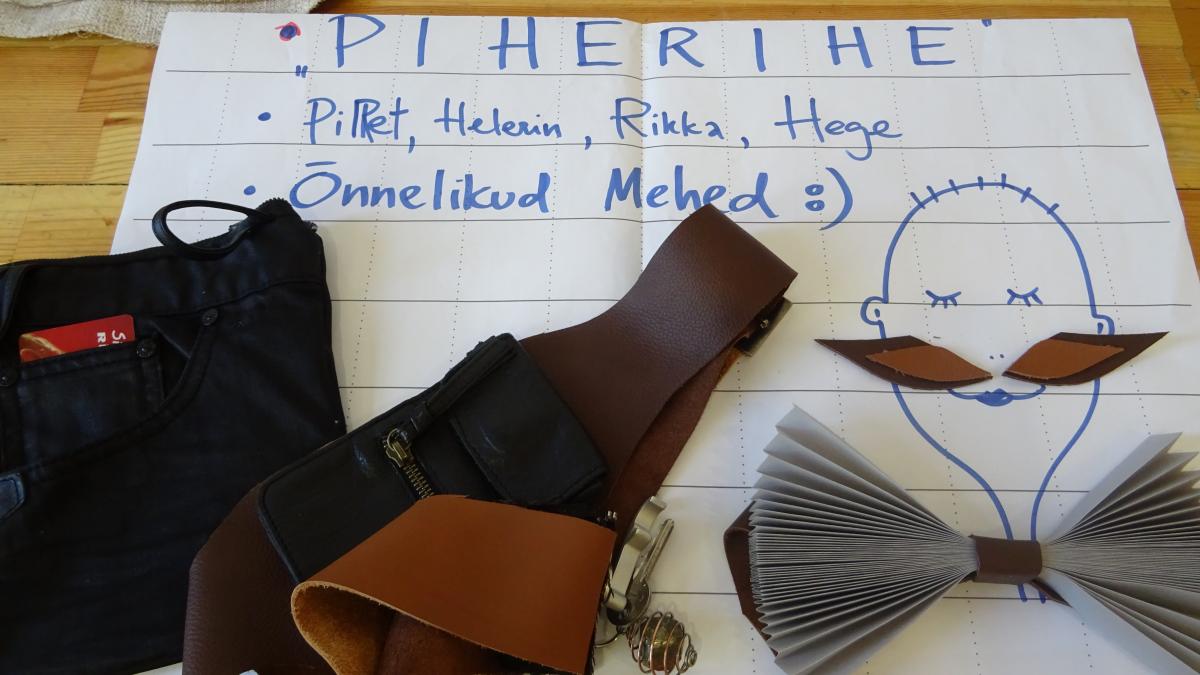 „PIHERIHE"
• PiRet, Helerin, Rikka, Hege
• Õnnelikud Mehed :)